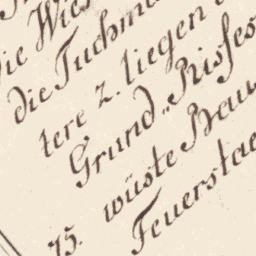 die Wies
die Tuchma
tere z. liegen
Grund „Risses
wüste Bau
75. Feuerstae